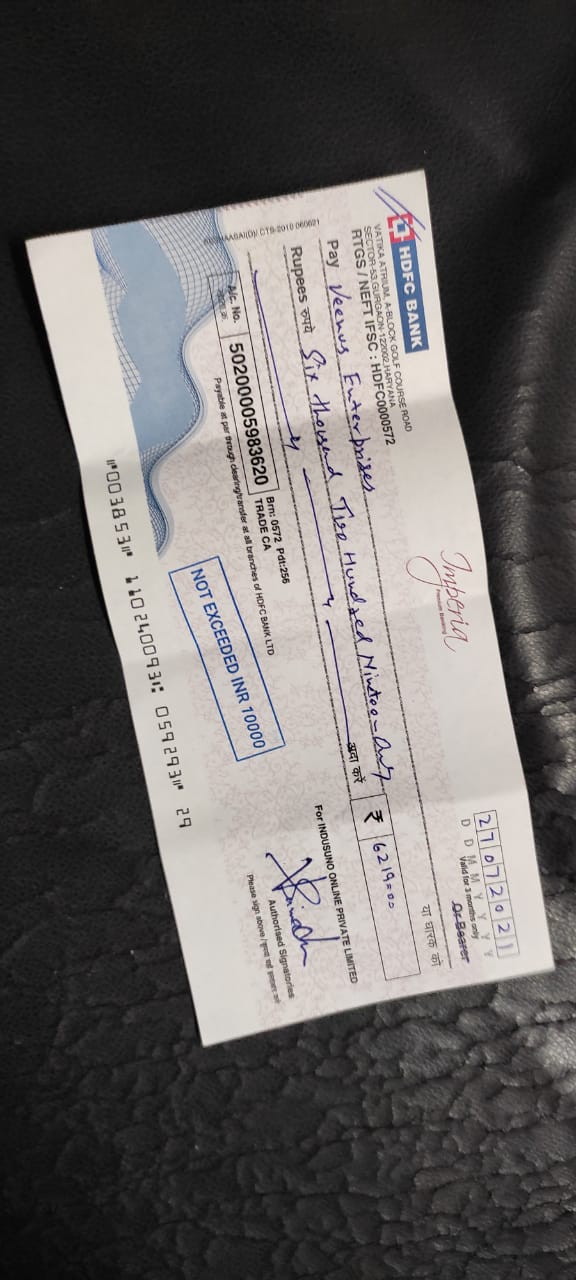 HDFC BANK
VATIKA ATRIUM, A-BLOCK GOLF COURSE ROAD
SECTOR-53, GURGAON-122002, HARYANA
RTGS / NEFT IFSC : HDFC0000572
Imperia
Premium Banking
27072021
D D M M Y Y Y Y
Valid for 3 months only
Pay Veenus Enterprises
Or Bearer
या धारक को
Rupees रुपये Six thousand Two Hundred Ninteen Only
अदा करें
₹ 6219=00
A/c. No. 50200005983620
Brn: 0572 Pdt:256
TRADE CA
Payable at par through clearing/transfer at all branches of HDFC BANK LTD
NOT EXCEEDED INR 10000
For INDUSUNO ONLINE PRIVATE LIMITED
Authorised Signatories
Please sign above /
CTS-2010 060621
⑈003853⑈ 110240093⑆ 059293⑈ 29